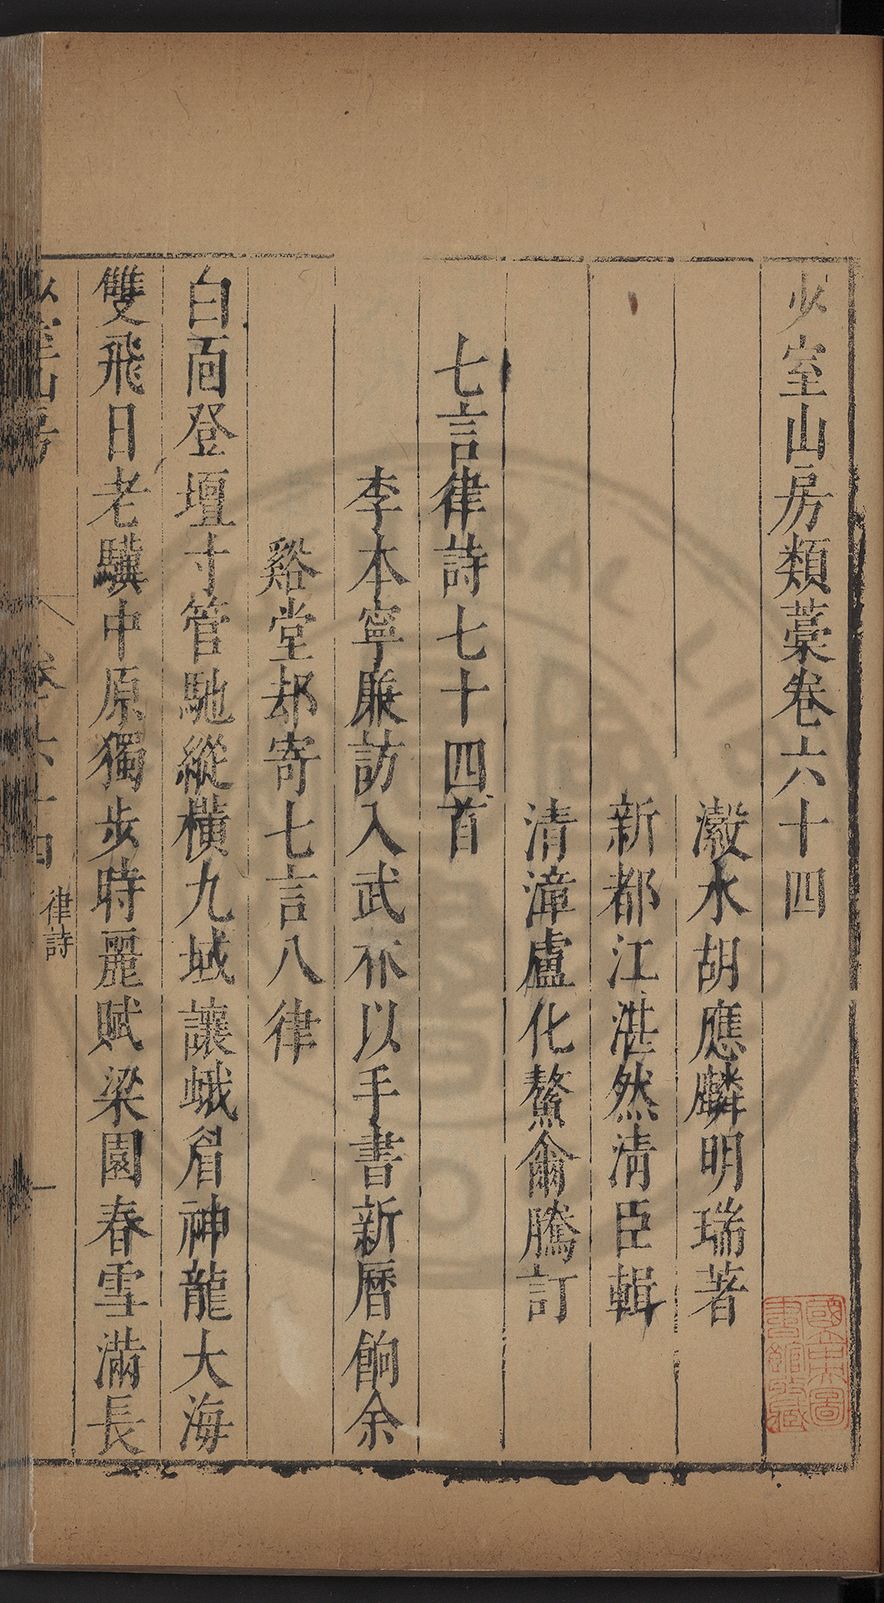 少室山房類藁卷六十四
瀫水胡應麟明瑞著
新都江湛然清臣輯
清漳盧化鰲爾騰訂
七言律詩七十四首
李本寧廉訪入武林以手書新曆餉余
谿堂却寄七言八律
白面登壇寸管馳縱橫九域讓蛾眉神龍大海
雙飛日老驥中原獨步時麗賦梁園春雪滿長
少室山房
卷六十四
律詩
一